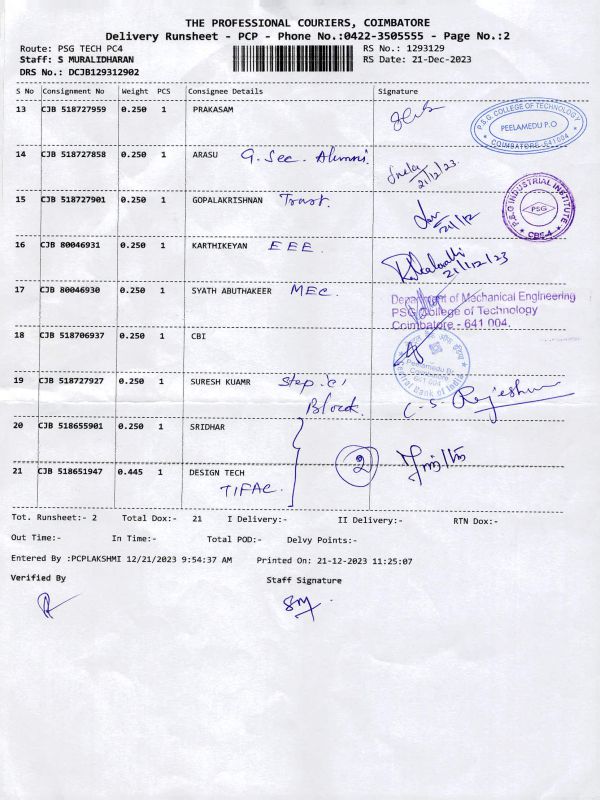 THE PROFESSIONAL COURIERS, COIMBATORE
Delivery Runsheet - PCP - Phone No.:0422-3505555 - Page No.:2
Route: PSG TECH PC4 RS No.: 1293129
Staff: S MURALIDHARAN RS Date: 21-Dec-2023
DRS No.: DCJB129312902
S No Consignment No Weight PCS Consignee Details Signature
13 CJB 518727959 0.250 1 PRAKASAM
P.S.G. COLLEGE OF TECHNOLOGY
PEELAMEDU P.O
COIMBATORE 641 004
14 CJB 518727858 0.250 1 ARASU G. Sec. Alumni.
21/12/23.
15 CJB 518727901 0.250 1 GOPALAKRISHNAN Trust.
21/12
P.S.G INDUSTRIAL INSTITUTE
PSG
CBE-4
16 CJB 80046931 0.250 1 KARTHIKEYAN EEE.
21/12/23
17 CJB 80046930 0.250 1 SYATH ABUTHAKEER MEC.
Department of Mechanical Engineering
PSG College of Technology
Coimbatore - 641 004.
18 CJB 518706937 0.250 1 CBI
Peelamedu Br.
Central Bank of India
19 CJB 518727927 0.250 1 SURESH KUAMR Step 'c'
Block. C. S. Rajeshwar
20 CJB 518655901 0.250 1 SRIDHAR
2
21 CJB 518651947 0.445 1 DESIGN TECH
TIFAC.
Tot. Runsheet:- 2 Total Dox:- 21 I Delivery:- II Delivery:- RTN Dox:-
Out Time:- In Time:- Total POD:- Delvy Points:-
Entered By :PCPLAKSHMI 12/21/2023 9:54:37 AM Printed On: 21-12-2023 11:25:07
Verified By Staff Signature